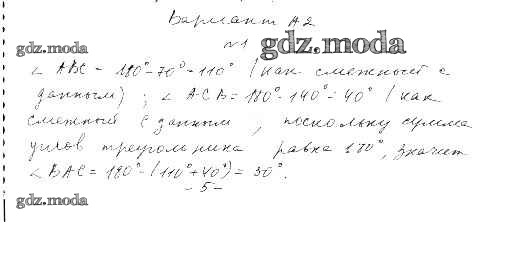 Вариант А2
gdz.moda №1 gdz.moda
∠ ABC = 180° - 70° = 110° (как смежный с
данным) ; ∠ ACB = 180° - 140° = 40° (как
смежный с данным, поскольку сумма
углов треугольника равна 180°, значит
∠ BAC = 180° - (110° + 40°) = 30°.
- 5 -
gdz.moda